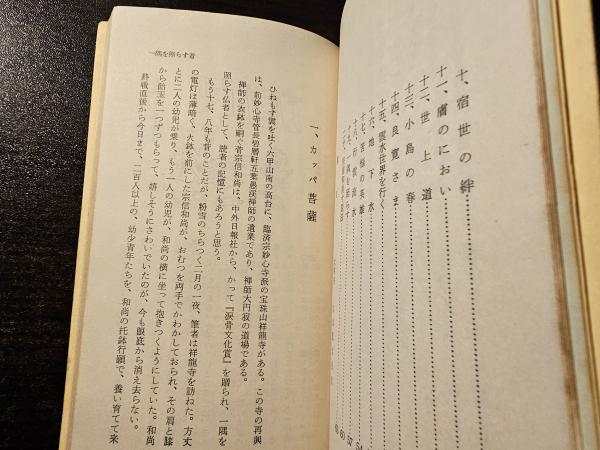 十、宿世の絆
十一、膚のにおい
十二、世上道
十三、小島の春
十四、良寛さま
十五、雲水世界を行く
十六、地下水
十七、苦悩の英雄
十八、行雲流水
十九、一隅を照らす
一隅を照らす者
一、カッパ菩薩
ひねもす雲を吐く六甲山南の高台に、臨済宗妙心寺派の宝珠山祥龍寺がある。この寺の再興
は、前妙心寺管長碧層軒五葉愚渓禅師の遺業であり、禅師大円寂の道場である。
禅師の衣鉢を嗣ぐ青宗信和尚は、中外日報社から、かって『涙骨文化賞』を贈られ、一隅を
照らす仏者として、読者の記憶にもあろうと思う。
もう十七、八年も昔のことだが、粉雪のちらつく二月の一夜、筆者は祥龍寺を訪ねた。方丈
の電灯は薄暗く、火鉢を前にした宗信和尚が、おむつを両手でかわかしておられ、その肩と膝
とに二人の幼児が乗り、もう一人の幼児が、和尚の横に坐って抱きつくようにしていた。和尚
から飴玉を一つずつもらって、嬉しそうにさわいでいたのが、今も眼底から消え去らない。
終戦直後から今日まで、二百人以上の、幼少青年たちを、和尚の托鉢行願で、養い育てて来